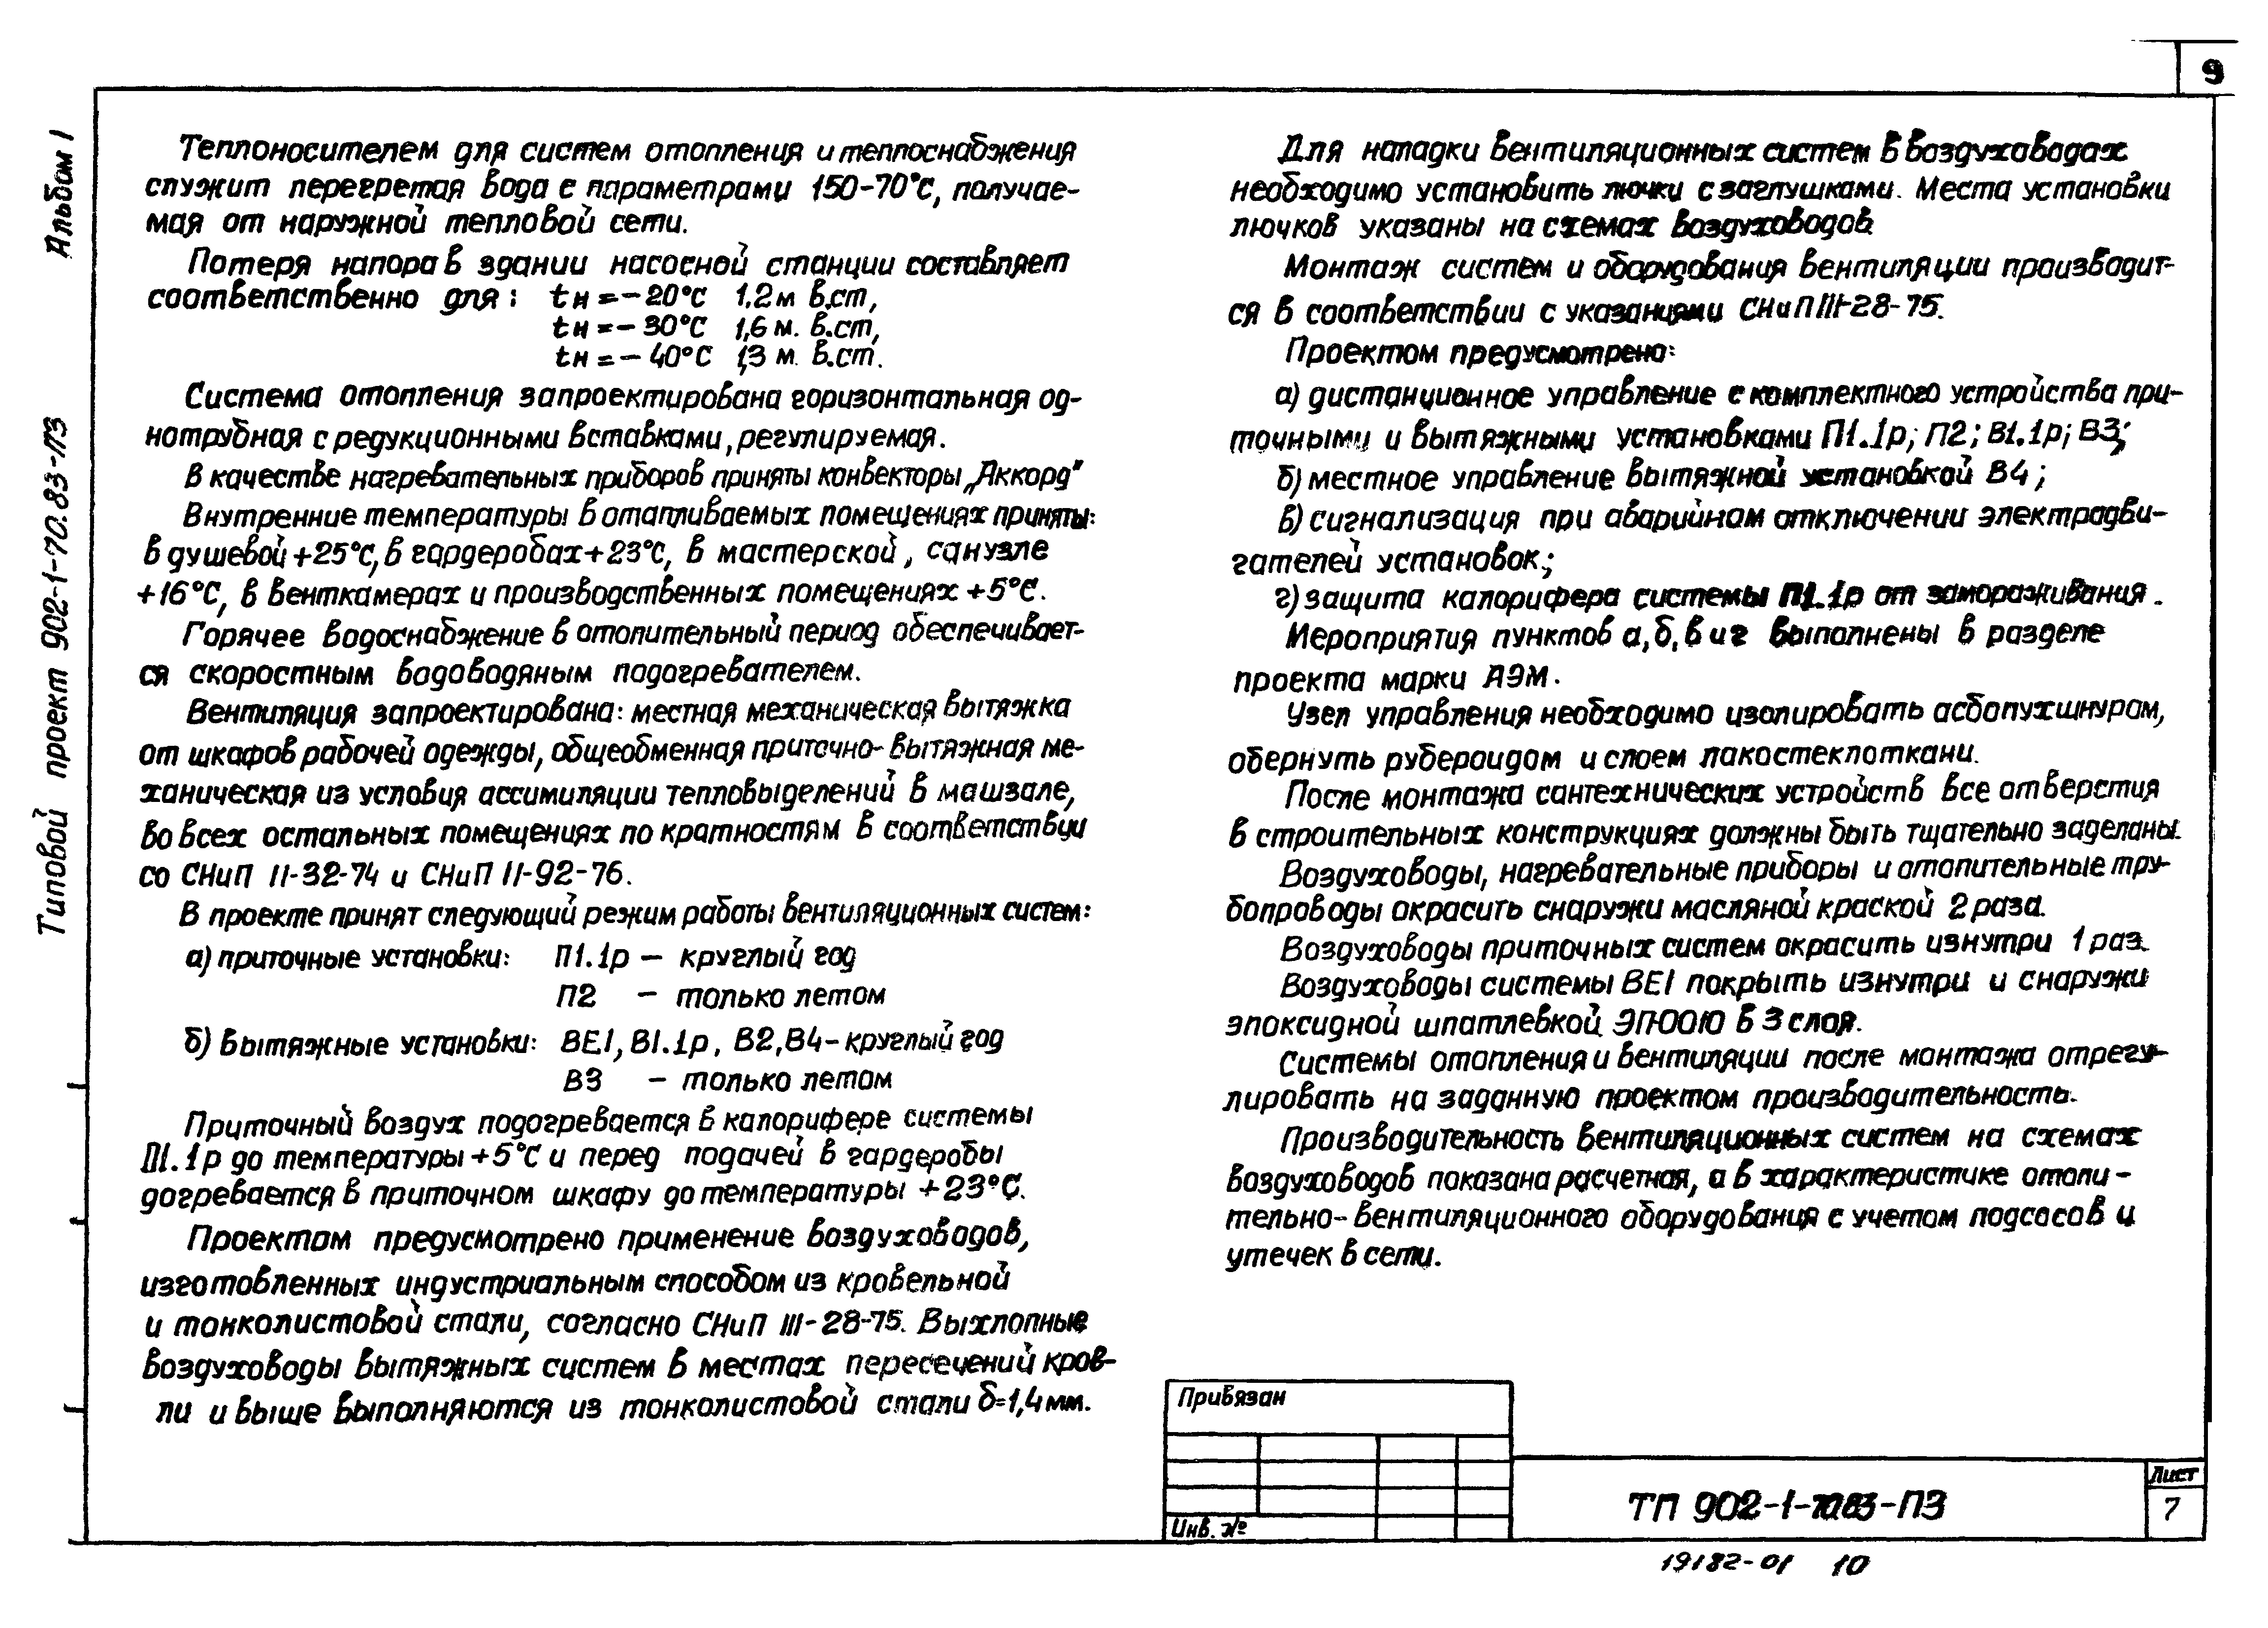 9
Альбом I
Типовой проект 902-1-70.83-ПЗ
Теплоносителем для систем отопления и теплоснабжения
служит перегретая вода с параметрами 150-70°С, получае-
мая от наружной тепловой сети.
Потеря напора в здании насосной станции составляет
соответственно для: tн=-20°С 1.2м в.ст,
tн=-30°С 1,6 м. в.ст,
tн=-40°С 1,3 м. в.ст.
Система отопления запроектирована горизонтальная од-
нотрубная с редукционными вставками, регулируемая.
В качестве нагревательных приборов приняты конвекторы „Аккорд"
Внутренние температуры в отапливаемых помещениях приняты:
в душевой +25°С, в гардеробах +23°С, в мастерской, санузле
+16°С, в венткамерах и производственных помещениях +5°С.
Горячее водоснабжение в отопительный период обеспечивает-
ся скоростным водоводяным подогревателем.
Вентиляция запроектирована: местная механическая вытяжка
от шкафов рабочей одежды, общеобменная приточно-вытяжная ме-
ханическая из условия ассимиляции тепловыделений в машзале,
во всех остальных помещениях по кратностям в соответствии
со СНиП II-32-74 и СНиП II-92-76.
В проекте принят следующий режим работы вентиляционных систем:
а) приточные установки: П1.1р – круглый год
П2 – только летом
б) вытяжные установки: ВЕ1, В1.1р, В2, В4 – круглый год
В3 – только летом
Приточный воздух подогревается в калорифере системы
П1.1р до температуры +5°С и перед подачей в гардеробы
догревается в приточном шкафу до температуры +23°С.
Проектом предусмотрено применение воздуховодов,
изготовленных индустриальным способом из кровельной
и тонколистовой стали, согласно СНиП III-28-75. Выхлопные
воздуховоды вытяжных систем в местах пересечений кров-
ли и выше выполняются из тонколистовой стали δ=1,4 мм.
Для наладки вентиляционных систем в воздуховодах
необходимо установить лючки с заглушками. Места установки
лючков указаны на схемах воздуховодов.
Монтаж систем и оборудования вентиляции производит-
ся в соответствии с указаниями СНиП III-28-75.
Проектом предусмотрено:
а) дистанционное управление с комплектного устройства при-
точными и вытяжными установками П1.1р; П2; В1.1р; В3;
б) местное управление вытяжной установкой В4;
в) сигнализация при аварийном отключении электродви-
гателей установок;
г) защита калорифера системы П1.1р от замораживания.
Мероприятия пунктов а, б, в и г выполнены в разделе
проекта марки АЭМ.
Узел управления необходимо изолировать асбопухшнуром,
обернуть рубероидом и слоем лакостеклоткани.
После монтажа сантехнических устройств все отверстия
в строительных конструкциях должны быть тщательно заделаны.
Воздуховоды, нагревательные приборы и отопительные тру-
бопроводы окрасить снаружи масляной краской 2 раза.
Воздуховоды приточных систем окрасить изнутри 1 раз.
Воздуховоды системы ВЕ1 покрыть изнутри и снаружи
эпоксидной шпатлевкой ЭП-0010 в 3 слоя.
Системы отопления и вентиляции после монтажа отрегу-
лировать на заданную проектом производительность.
Производительность вентиляционных систем на схемах
воздуховодов показана расчетная, а в характеристике отопи-
тельно-вентиляционного оборудования с учетом подсосов и
утечек в сети.
Привязан
Инв. №
ТП 902-1-70.83-ПЗ
Лист
7
19182-01 10